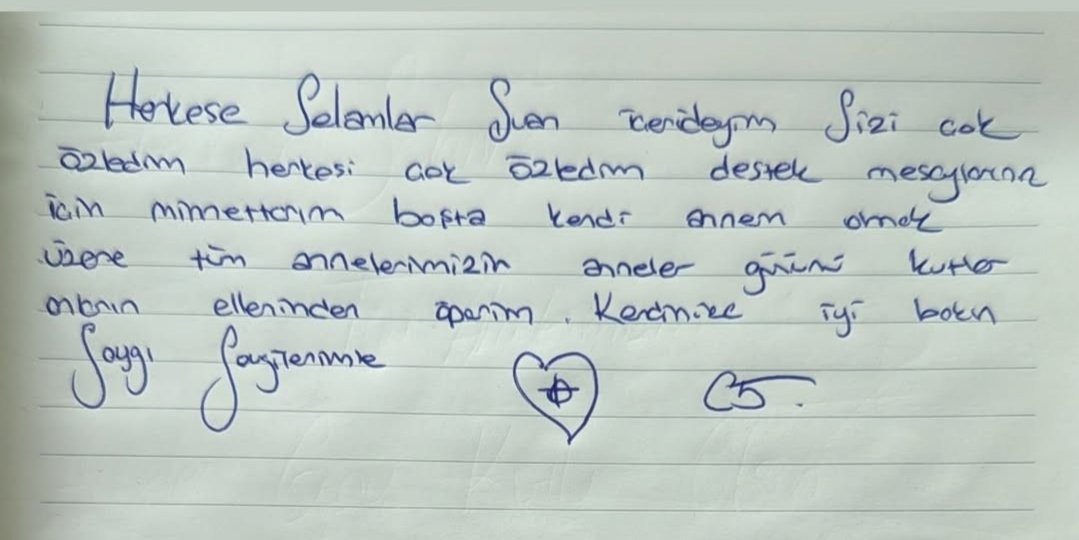 Herkese Selamlar Şuan içerideyim Sizi çok
özledim herkesi çok özledim destek mesajlarınız
için minnettarım başta kendi annem olmak
üzere tüm annelerimizin anneler gününü kutlar
onların ellerinden öperim. Kendinize iyi bakın
Saygı Saygılarımla C5.